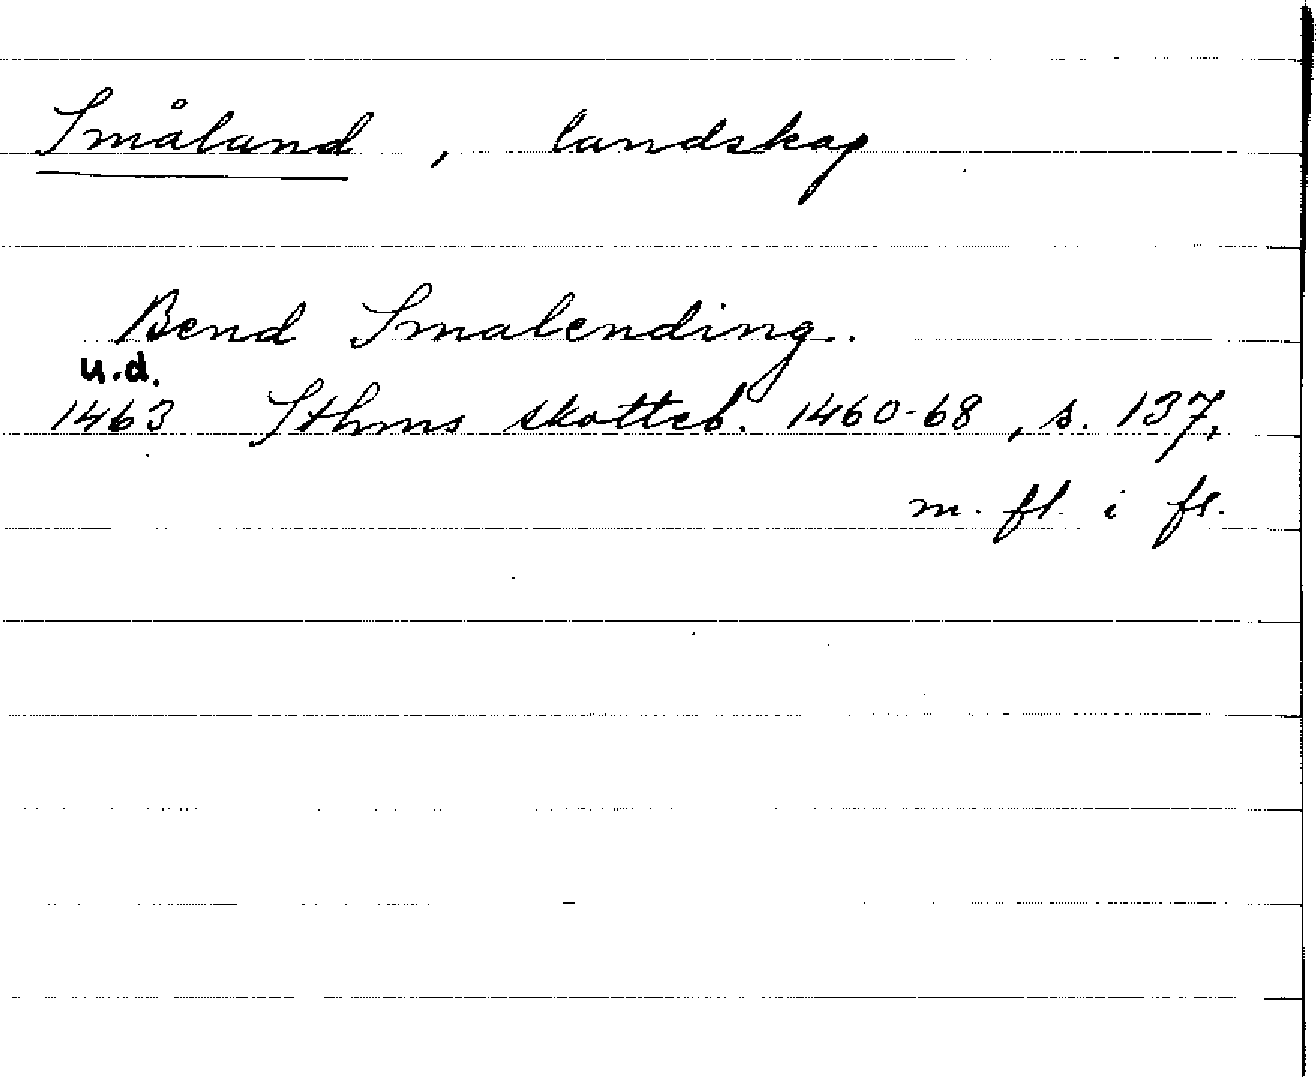 Småland, landskap
Bend Smalending.
u.d.
1463 Sthms skotteb. 1460-68, s. 137,
m. fl. i fl.